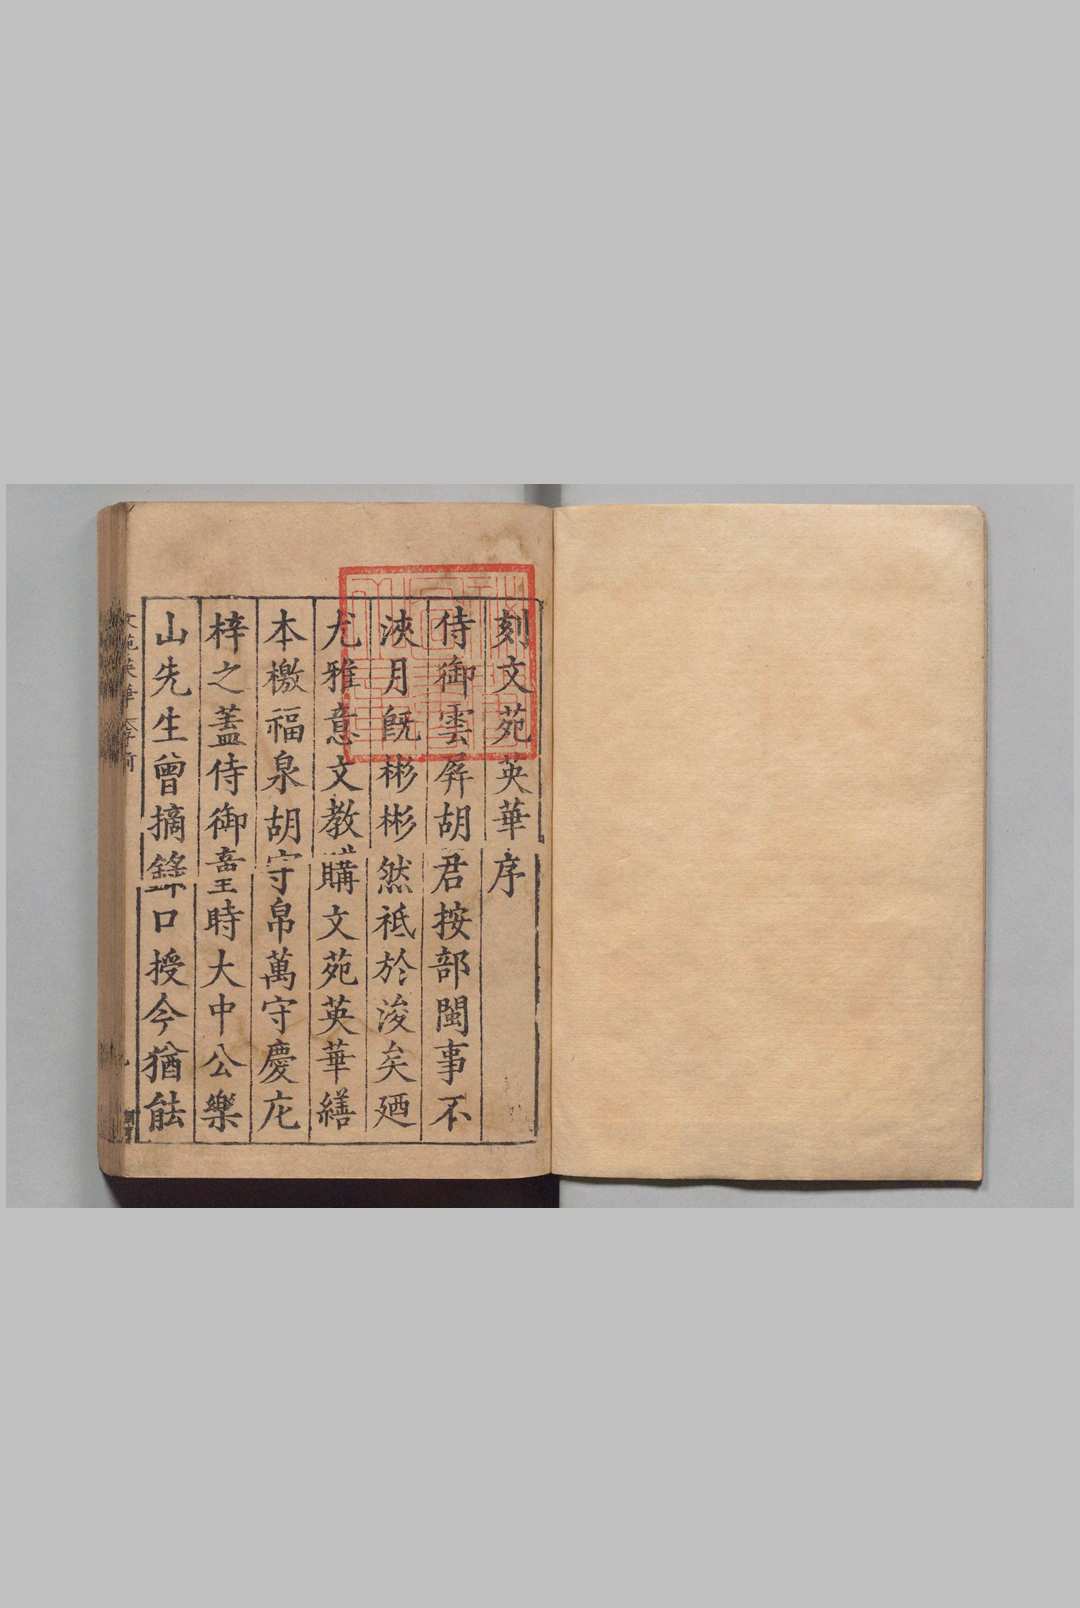 刻文苑英華序
侍御雲屏胡君按部閩事不
浹月旣彬彬然祗於浚矣廼
尤雅意文教購文苑英華繕
本檄福泉胡守帛萬守慶庀
梓之蓋侍御童時大中公樂
山先生曾摘錄口授今猶能
文苑英華 序前